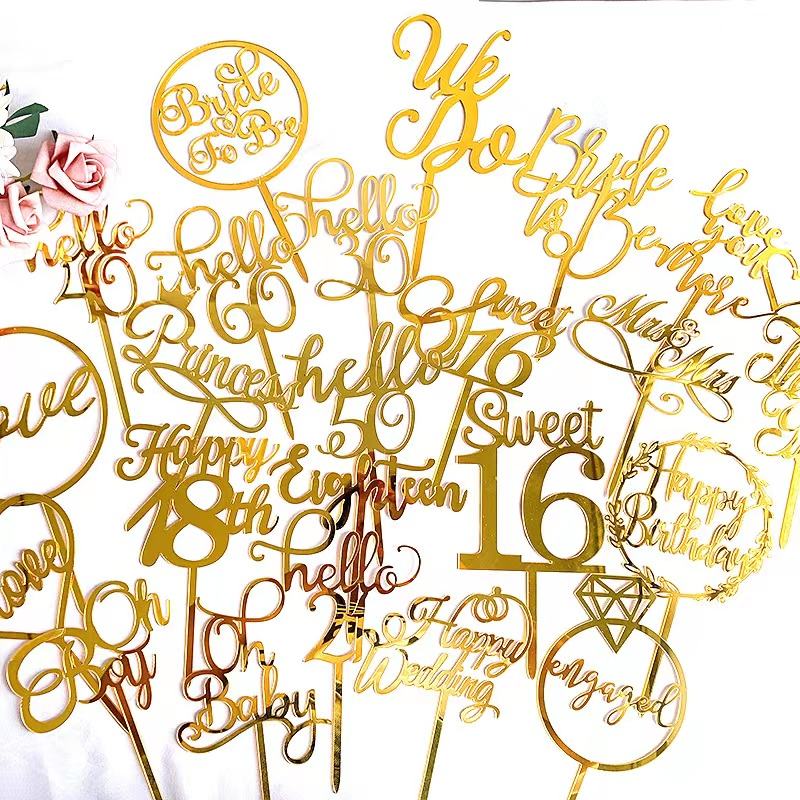 Bride
To Be
We
Do
Bride
to Be
love
you
more
hello
40
hello
60
hello
30
Sweet
16
Mr&
Mrs
Princess
hello
50
Love
Happy
18th
Eighteen
Sweet
16
Happy
Birthday
love
Oh
Boy
Oh
Baby
hello
Happy
Wedding
engaged